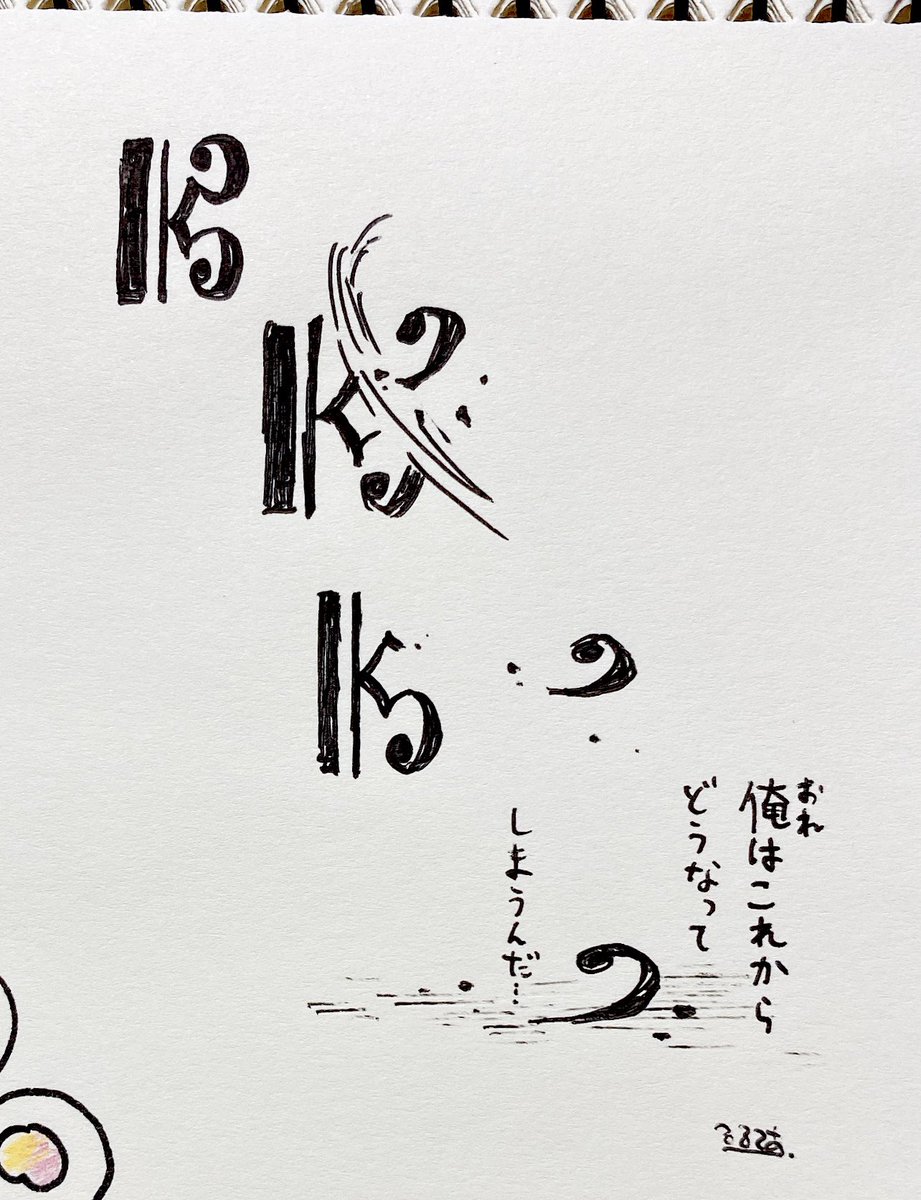 おれ
俺はこれから
どうなって
しまうんだ…